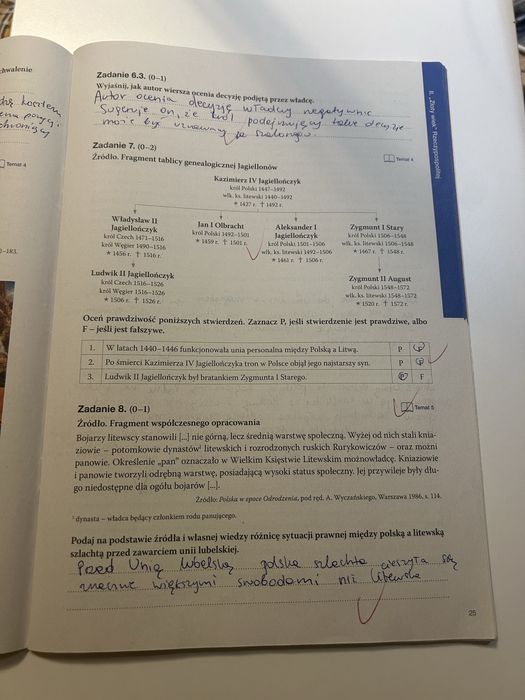 chwalenie
Temat 4
II. „Złoty wiek” Rzeczypospolitej
Zadanie 6.3. (0–1)
Wyjaśnij, jak autor wiersza ocenia decyzję podjętą przez władcę.
Autor ocenia decyzję władcy negatywnie
Sugeruje on, że król podejmujący takie decyzje
może być uznawany za szalonego.
Zadanie 7. (0–2)
Temat 4
Źródło. Fragment tablicy genealogicznej Jagiellonów
Kazimierz IV Jagiellończyk
król Polski 1447–1492
wlk. ks. litewski 1440–1492
* 1427 r. † 1492 r.
Władysław II
Jagiellończyk
król Czech 1471–1516
król Węgier 1490–1516
* 1456 r. † 1516 r.
Jan I Olbracht
król Polski 1492–1501
* 1459 r. † 1501 r.
Aleksander I
Jagiellończyk
król Polski 1501–1506
wlk. ks. litewski 1492–1506
* 1461 r. † 1506 r.
Zygmunt I Stary
król Polski 1506–1548
wlk. ks. litewski 1506–1548
* 1467 r. † 1548 r.
Ludwik II Jagiellończyk
król Czech 1516–1526
król Węgier 1516–1526
* 1506 r. † 1526 r.
Zygmunt II August
król Polski 1548–1572
wlk. ks. litewski 1548–1572
* 1520 r. † 1572 r.
Oceń prawdziwość poniższych stwierdzeń. Zaznacz P, jeśli stwierdzenie jest prawdziwe, albo
F – jeśli jest fałszywe.
1. W latach 1440–1446 funkcjonowała unia personalna między Polską a Litwą. P F
2. Po śmierci Kazimierza IV Jagiellończyka tron w Polsce objął jego najstarszy syn. P F
3. Ludwik II Jagiellończyk był bratankiem Zygmunta I Starego. P F
Zadanie 8. (0–1)
Temat 5
Źródło. Fragment współczesnego opracowania
Bojarzy litewscy stanowili [...] nie górną, lecz średnią warstwę społeczną. Wyżej od nich stali knia-
ziowie – potomkowie dynastów¹ litewskich i rozrodzonych ruskich Rurykowiczów – oraz możni
panowie. Określenie „pan” oznaczało w Wielkim Księstwie Litewskim możnowładcę. Kniaziowie
i panowie tworzyli odrębną warstwę, posiadającą wysoki status społeczny. Jej przywileje były dłu-
go niedostępne dla ogółu bojarów [...].
Źródło: Polska w epoce Odrodzenia, pod red. A. Wyczańskiego, Warszawa 1986, s. 114.
¹ dynasta – władca będący członkiem rodu panującego.
Podaj na podstawie źródła i wiedzy własnej wiedzy różnicę sytuacji prawnej między polską a litewską
szlachtą przed zawarciem unii lubelskiej.
Przed Unią lubelską polska szlachta cieszyła się
znacznie większymi swobodami niż litewska
25